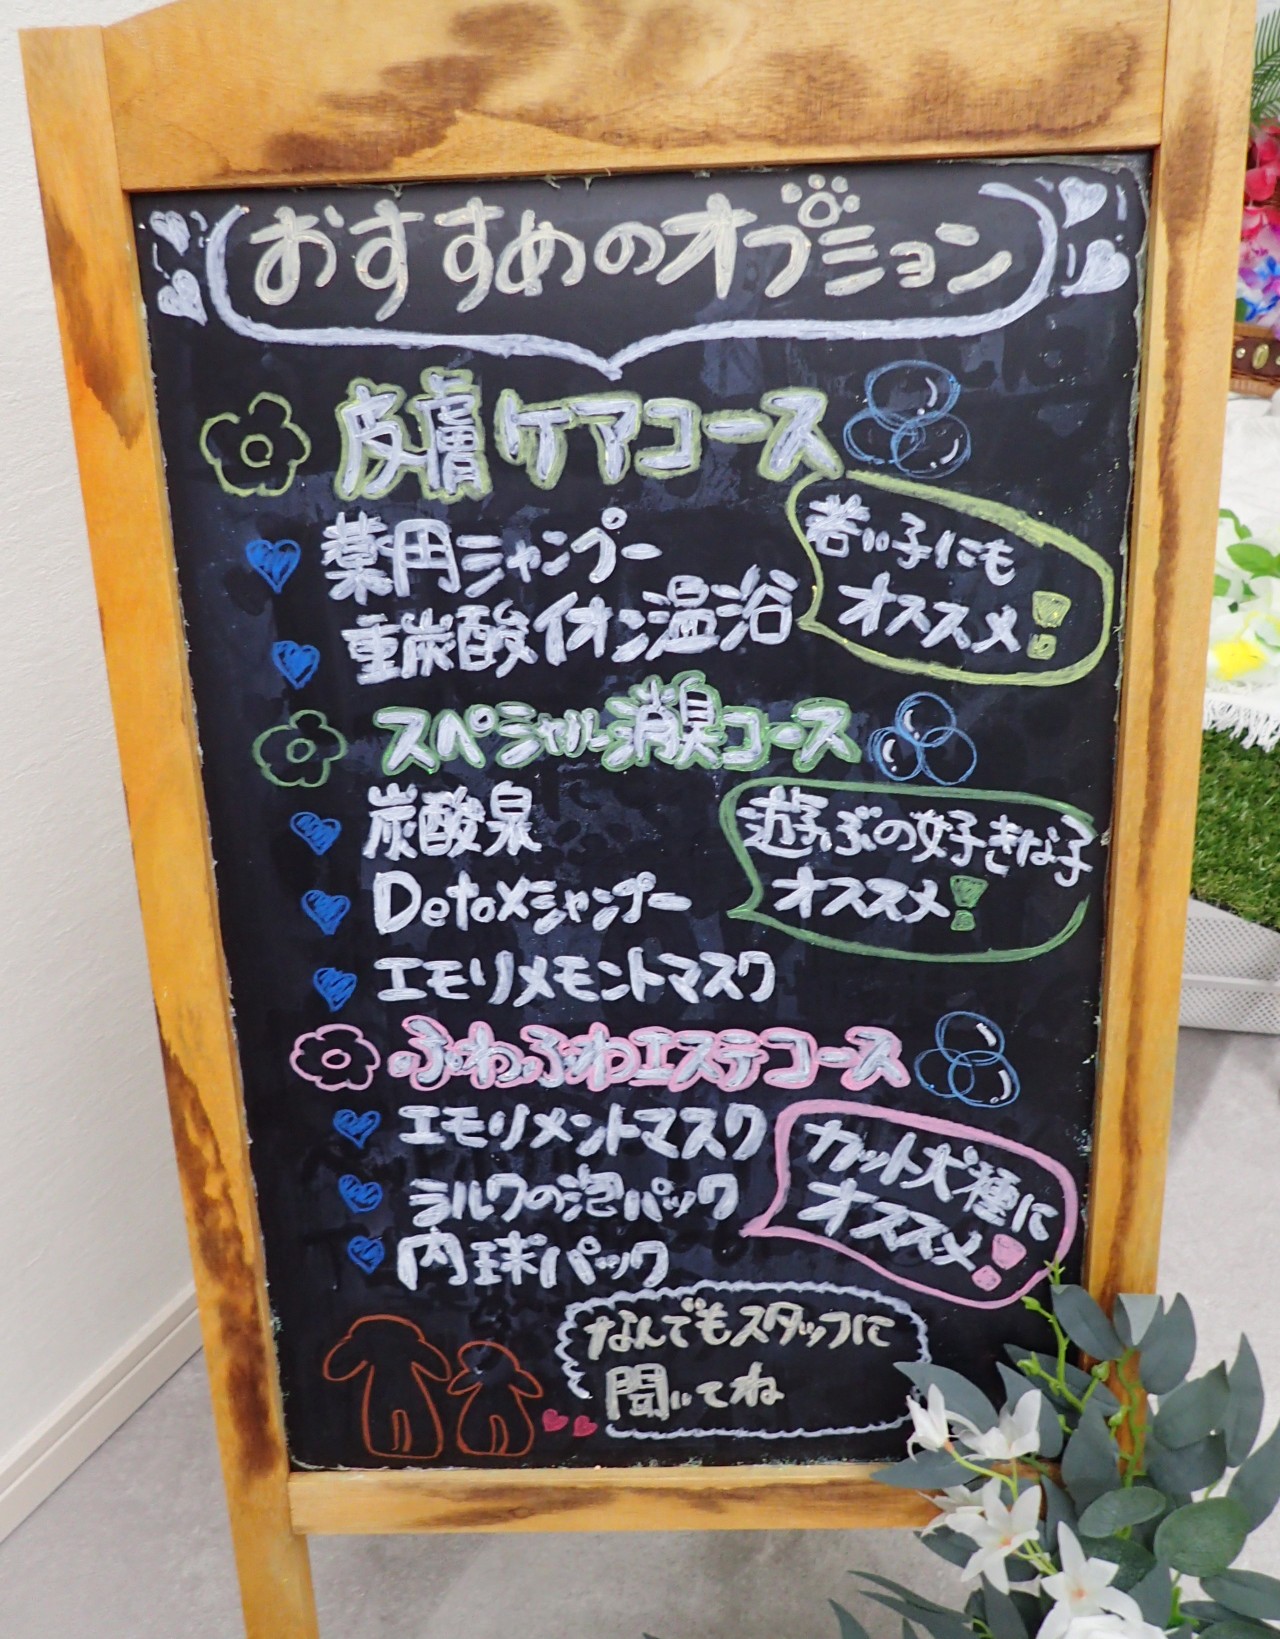 おすすめのオプション
皮膚ケアコース
薬用シャンプー
重炭酸イオン温浴
若い子にも
オススメ!
スペシャル消臭コース
炭酸泉
Detoxシャンプー
エモリメモントマスク
遊ぶの好きな子
オススメ!
ふわふわエステコース
エモリメントマスク
ミルクの泡パック
肉球パック
カット犬種に
オススメ!
なんでもスタッフに
聞いてね